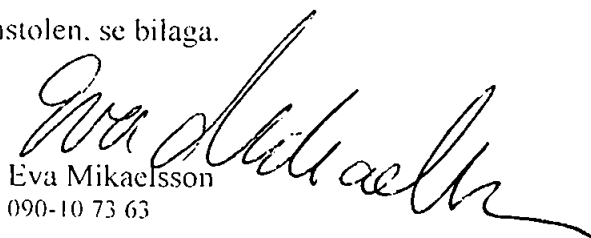 nstolen, se bilaga.
Eva Mikaelsson
Eva Mikaelsson
090-10 73 63